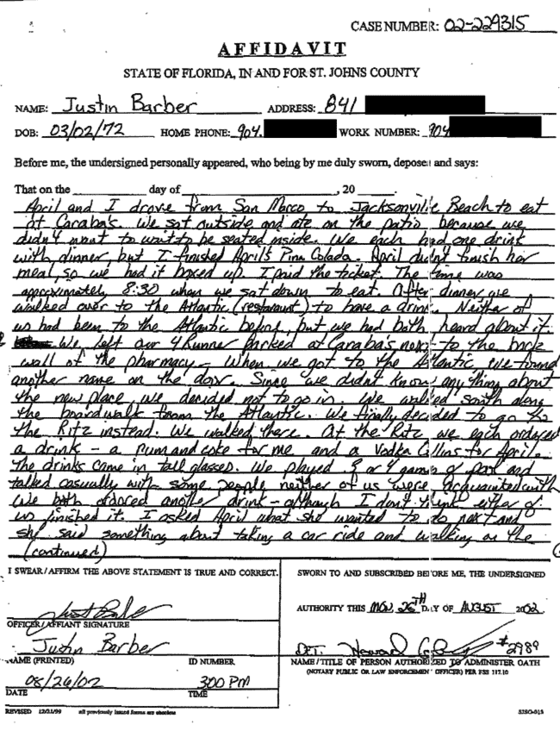 CASE NUMBER: 02-229315
AFFIDAVIT
STATE OF FLORIDA, IN AND FOR ST. JOHNS COUNTY
NAME: Justin Barber ADDRESS: 841
DOB: 03/02/72 HOME PHONE: 904. WORK NUMBER: 904
Before me, the undersigned personally appeared, who being by me duly sworn, deposes and says:
That on the ____ day of ____, 20 ____.
April and I drove from San Marco to Jacksonville Beach to eat
at Caraba's. We sat outside and ate on the patio because we
didn't want to wait to be seated inside. We each had one drink
with dinner, but I finished April's Pina Colada. April didn't finish her
meal, so we had it boxed up. I paid the ticket. The time was
approximately 8:30 when we sat down to eat. After dinner we
walked over to the Atlantic (restaurant) to have a drink. Neither of
us had been to the Atlantic before, but we had both heard about it.
We left our 4Runner parked at Caraba's next to the back
wall of the pharmacy. When we got to the Atlantic we found
another name on the door. Since we didn't know anything about
the new place, we decided not to go in. We walked south along
the boardwalk from the Atlantic. We finally decided to go to
the Ritz instead. We walked there. At the Ritz we each ordered
a drink - a rum and coke for me and a Vodka Collins for April.
The drinks came in tall glasses. We played 3 or 4 games of pool and
talked casually with some people neither of us were acquainted with.
We both ordered another drink - although I don't think either of
us finished it. I asked April what she wanted to do next and
she said something about taking a car ride and walking on the
(continued)
I SWEAR/AFFIRM THE ABOVE STATEMENT IS TRUE AND CORRECT.
OFFICER/AFFIANT SIGNATURE
Justin Barber
NAME (PRINTED) ID NUMBER
08/26/02 300 PM
DATE TIME
SWORN TO AND SUBSCRIBED BEFORE ME, THE UNDERSIGNED
AUTHORITY THIS MON. 26TH DAY OF AUGUST 2002
DET. Howard #2989
NAME/TITLE OF PERSON AUTHORIZED TO ADMINISTER OATH
(NOTARY PUBLIC OR LAW ENFORCEMENT OFFICER) PER FSS 117.10
REVISED 12/21/99 all previously issued forms are obsolete